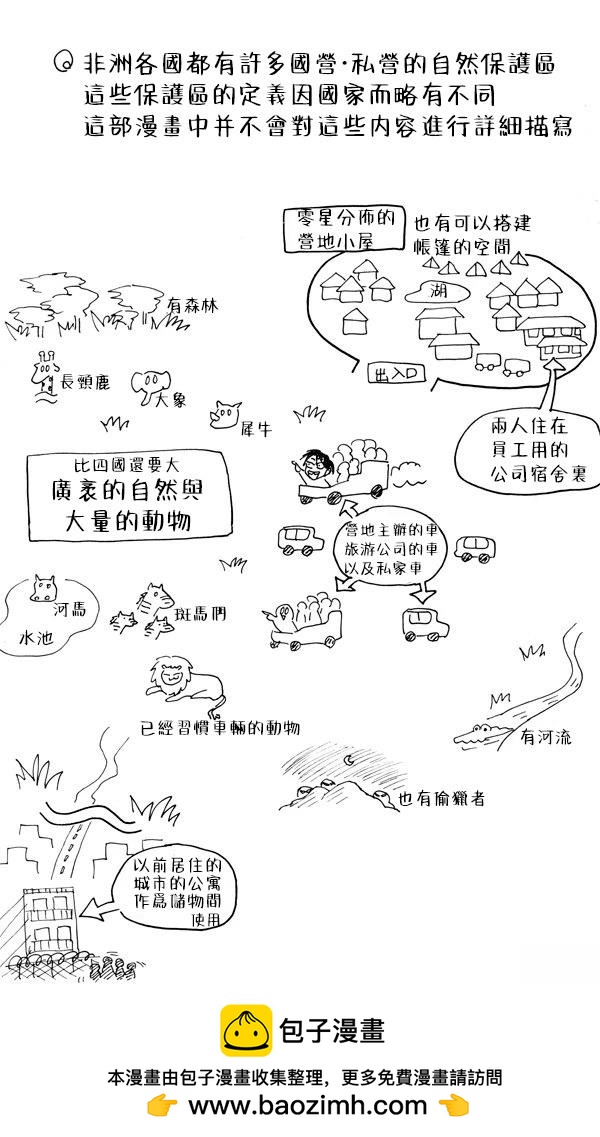 非洲各國都有許多國營·私營的自然保護區
這些保護區的定義因國家而略有不同
這部漫畫中并不會對這些内容進行詳細描寫
零星分佈的
營地小屋
也有可以搭建
帳篷的空間
湖
出入口
有森林
長頸鹿
大象
犀牛
兩人住在
員工用的
公司宿舍裏
比四國還要大
廣袤的自然與
大量的動物
營地主辦的車
旅游公司的車
以及私家車
河馬
水池
斑馬們
已經習慣車輛的動物
有河流
也有偷獵者
以前居住的
城市的公寓
作爲儲物間
使用
包子漫畫
本漫畫由包子漫畫收集整理，更多免費漫畫請訪問
👉 www.baozimh.com 👈